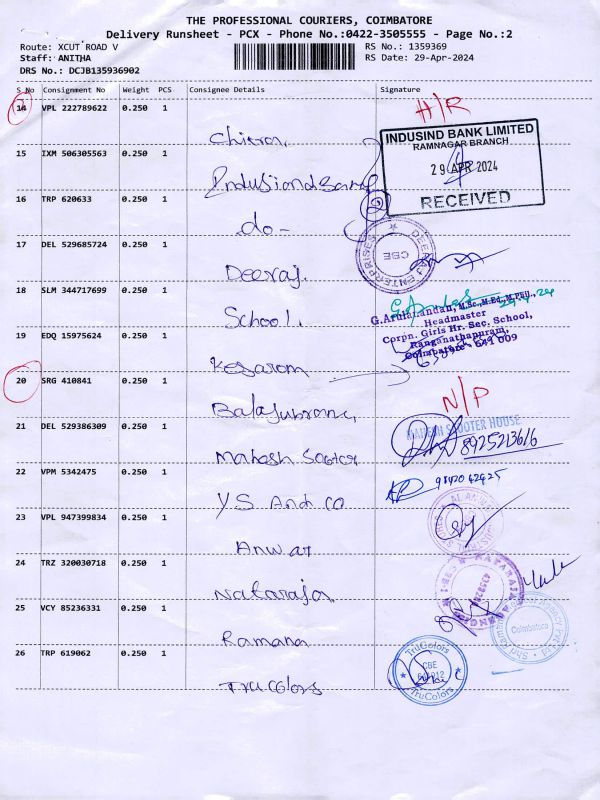 THE PROFESSIONAL COURIERS, COIMBATORE
Delivery Runsheet - PCX - Phone No.:0422-3505555 - Page No.:2
Route: XCUT ROAD V RS No.: 1359369
Staff: ANITHA RS Date: 29-Apr-2024
DRS No.: DCJB135936902
S No Consignment No Weight PCS Consignee Details Signature
14 VPL 222789622 0.250 1
H/R
Chitra
INDUSIND BANK LIMITED
RAMNAGAR BRANCH
29 APR 2024
RECEIVED
15 IXM 506305563 0.250 1
Indusiand Bank
16 TRP 620633 0.250 1
do-
17 DEL 529685724 0.250 1
DEERAJ ENTERPRISES
CBE
Deeraj.
18 SLM 344717699 0.250 1
School.
G.Arulanandan, M.Sc.,M.Ed.,M.Phil.,
Headmaster
Corpn. Girls Hr. Sec. School,
Ranganathapuram,
Coimbatore - 641 009
19 EDQ 15975624 0.250 1
Kesaram
20 SRG 410841 0.250 1
N/P
21 DEL 529386309 0.250 1
MAHESH SCOOTER HOUSE
8925213616
Mahesh Scooter
22 VPM 5342475 0.250 1
98420 62425
YS And CO
23 VPL 947399834 0.250 1
Anwar
24 TRZ 320030718 0.250 1
Nataraja
25 VCY 85236331 0.250 1
Coimbatore
Ramana
26 TRP 619062 0.250 1
TruColors
CBE
TruColors
Tru Colors